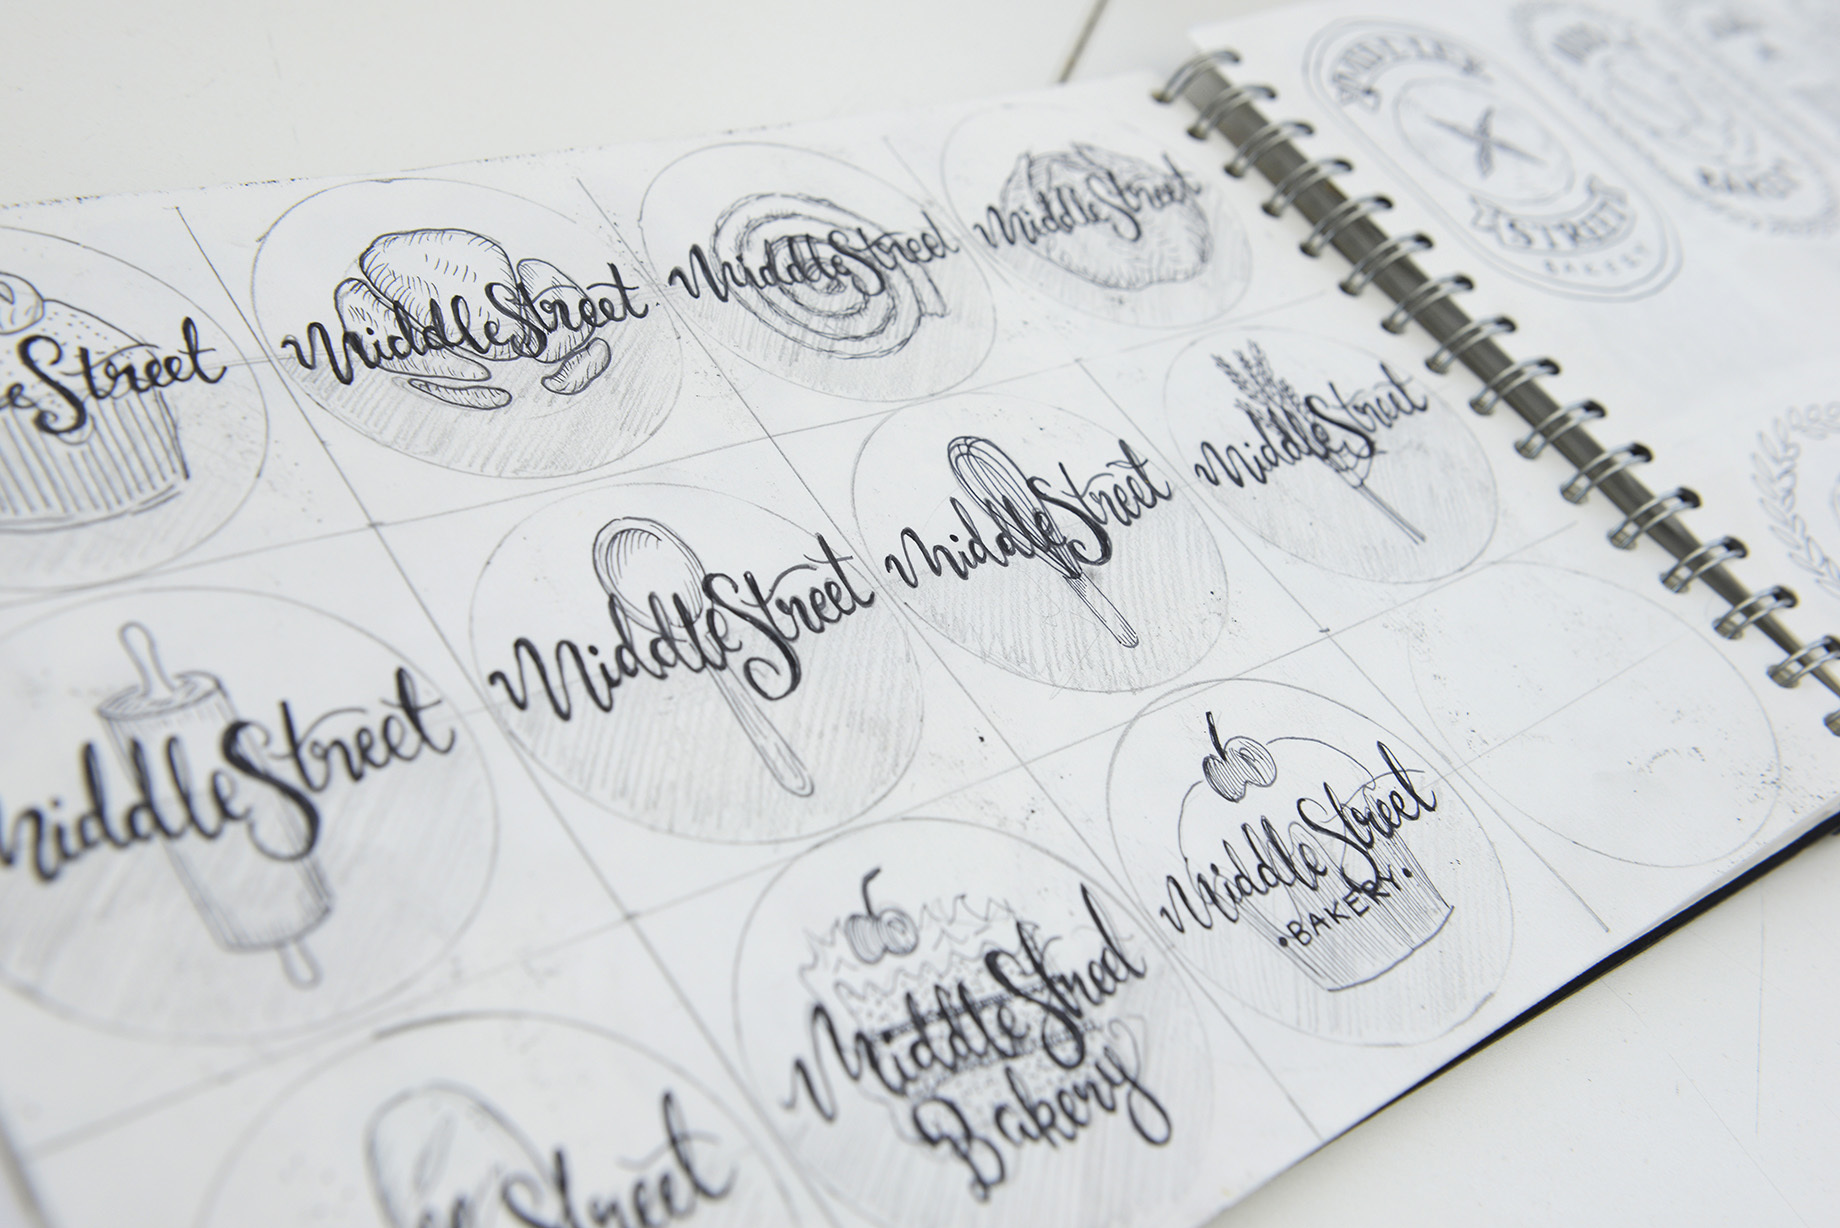 Street
Middle Street
Middle Street
Middle Street
Middle Street
Middle Street
Middle Street
Middle Street
Street
Middle Street
Bakery
Middle Street
• BAKERY •
MIDDLE
STREET
BAKERY
BAKERY